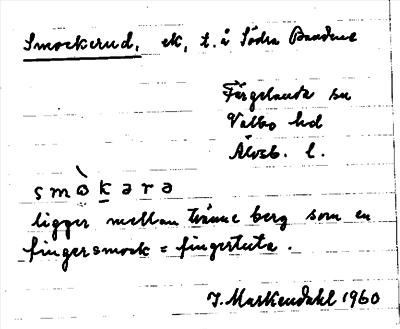 Smockerud, ek, t. å Södra Baadene
Färgelanda sn
Valbo hd
Älvsb. l.
smòkərə
ligger mellan tvänne berg som en
fingersmock = fingertuta.
J. Markendahl 1960